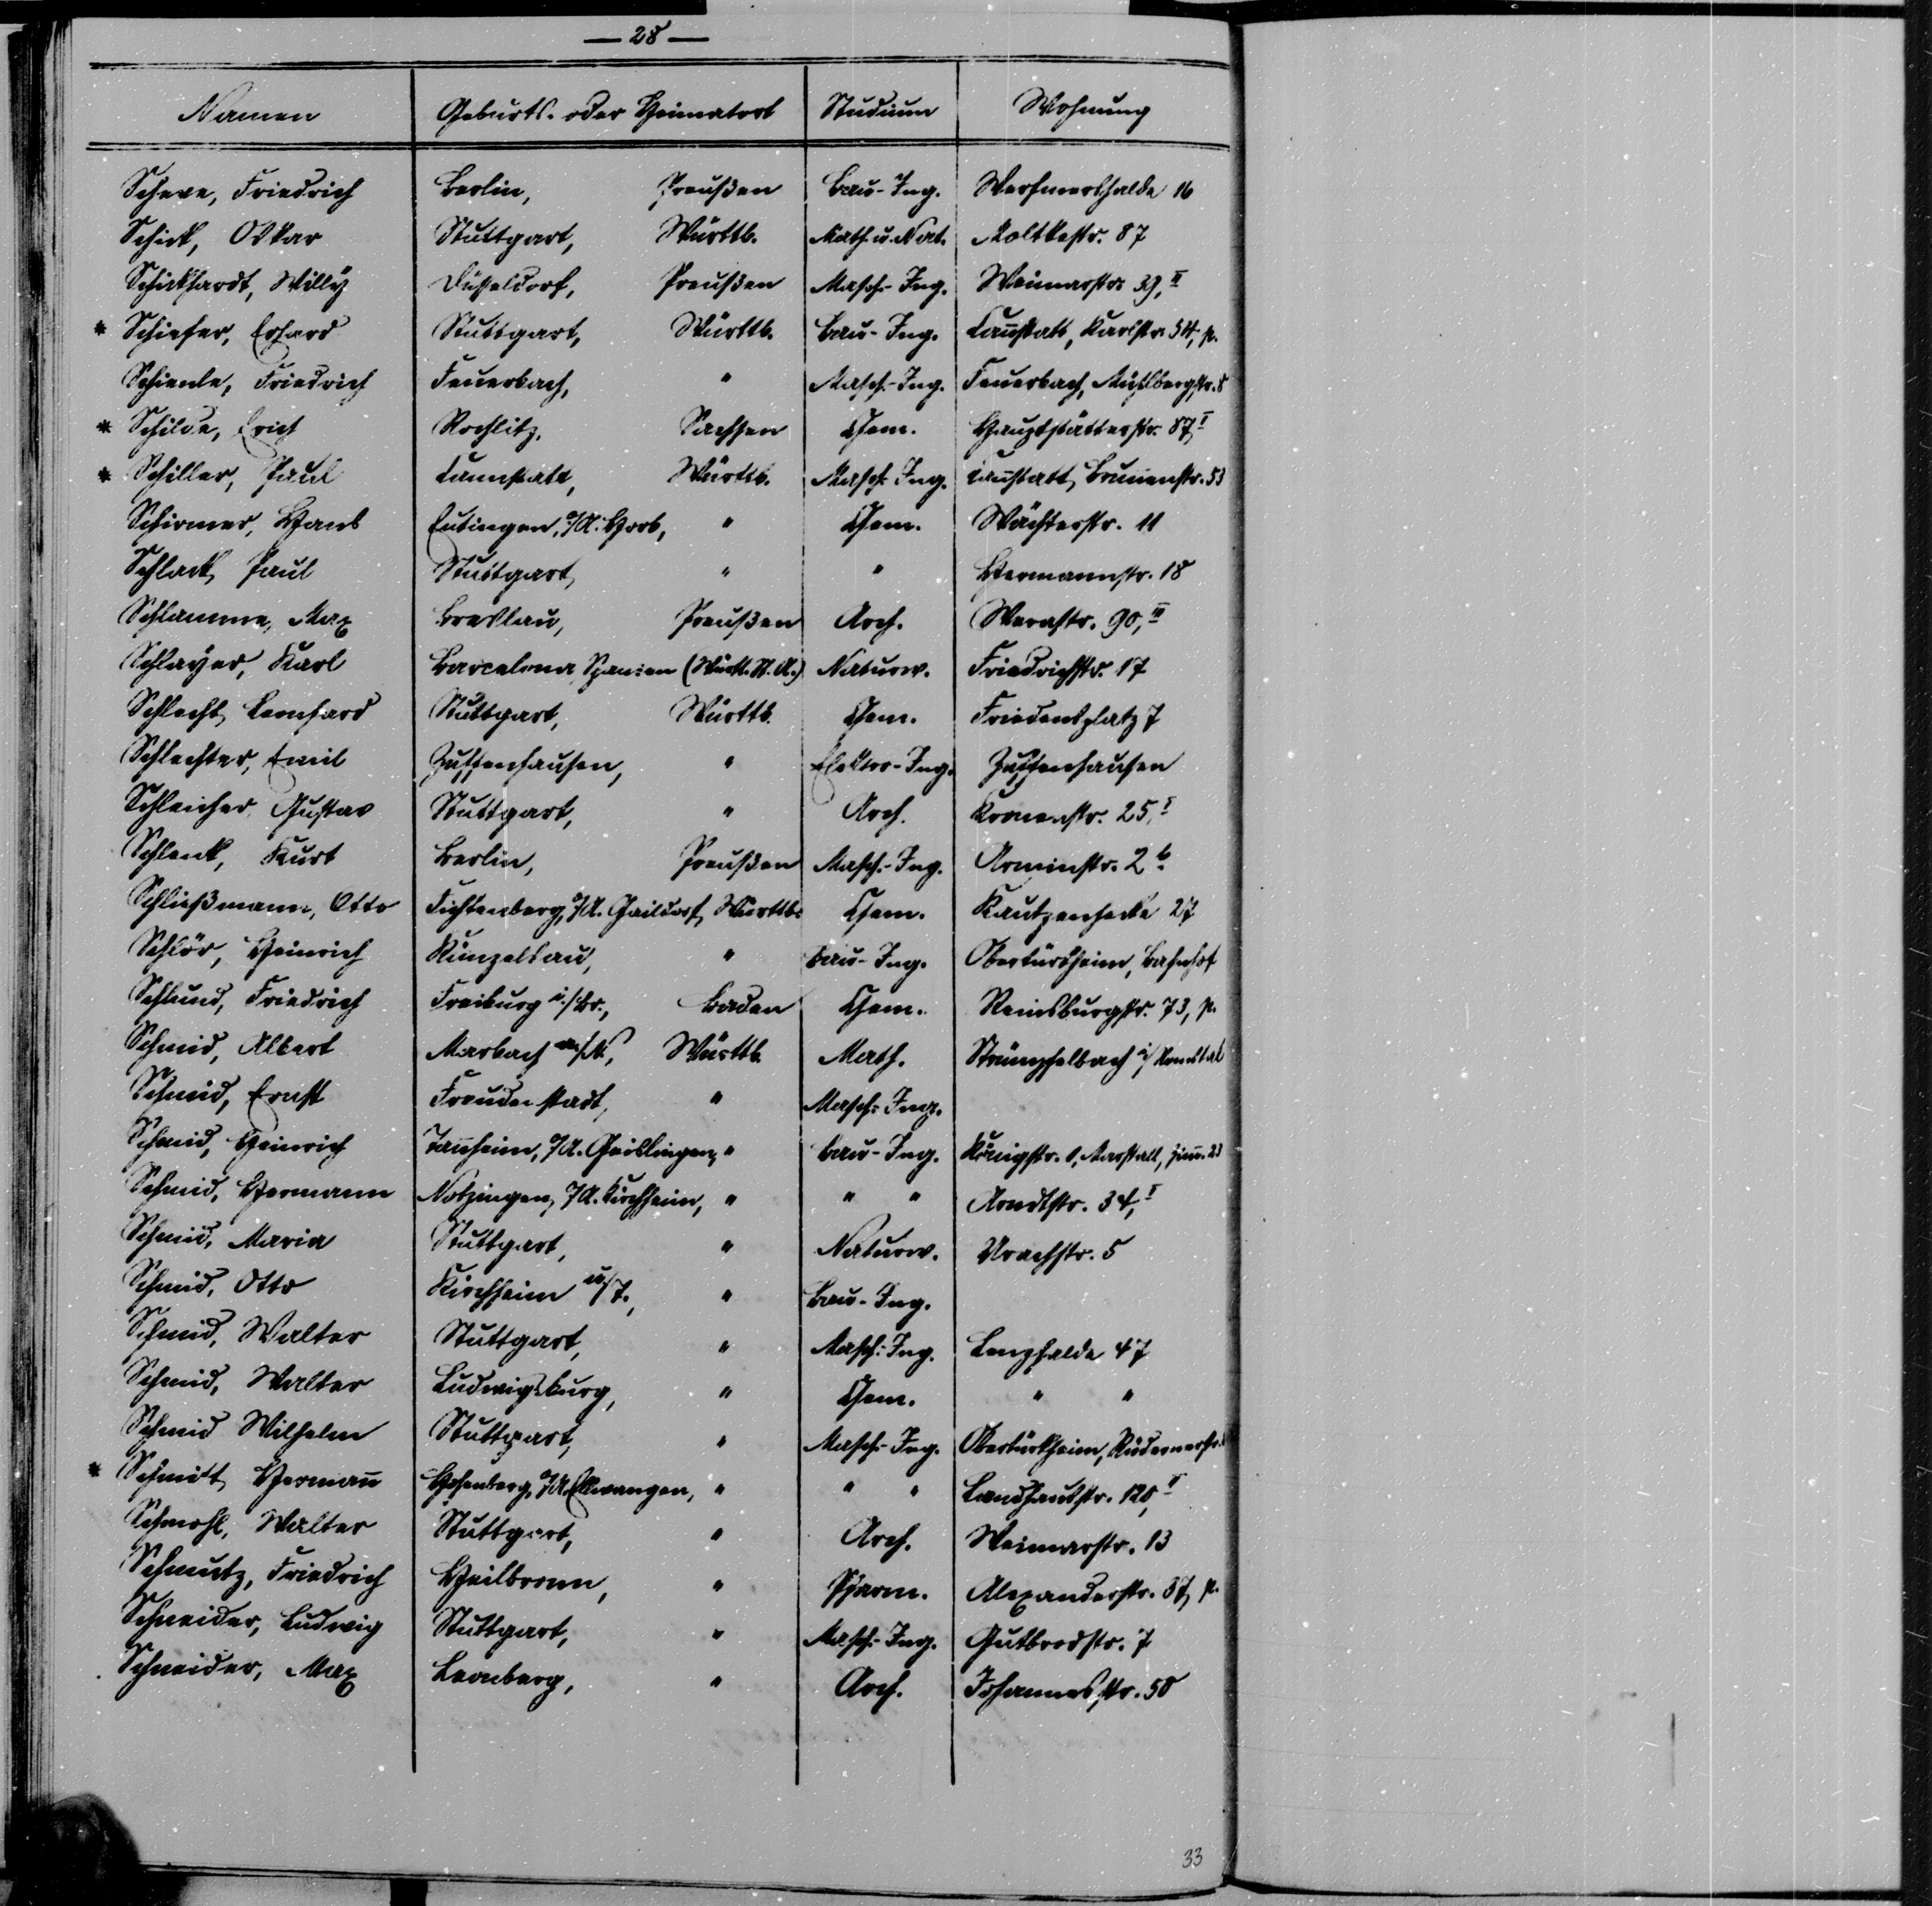 — 28 —
Namen Geburts- oder Heimatort Studium Wohnung
Scheve, Friedrich Berlin, Preußen Bau-Ing. Werfmershalde 16
Schick, Oskar Stuttgart, Württb. Math. u. Nat. Moltkestr. 87
Schickhardt, Willy Düsseldorf, Preußen Masch.-Ing. Weimarstr. 39, II
* Schiefer, Erhard Stuttgart, Württb. Bau-Ing. Cannstatt, Karlstr. 54, p.
Schienle, Friedrich Feuerbach, " Masch.-Ing. Feuerbach, Mühlbergstr. 8
* Schilde, Erich Rochlitz, Sachsen Chem. Hauptstätterstr. 87 I
* Schiller, Paul Cannstatt, Württb. Masch.-Ing. Cannstatt, Brunnenstr. 53
Schirmer, Hans Eutingen, O/A. Horb, " Chem. Wächterstr. 11
Schlack, Paul Stuttgart, " " Hermannstr. 18
Schlamme, Max Breslau, Preußen Arch. Werastr. 90, III
Schlayer, Karl Barcelona, Spanien (Württ. St. A.) Naturw. Friedrichstr. 17
Schlecht, Leonhard Stuttgart, Württb. Chem. Friedensplatz 7
Schlechter, Emil Zuffenhausen, " Elektro-Ing. Zuffenhausen
Schleicher, Gustav Stuttgart, " Arch. Kronenstr. 25, I
Schlenk, Kurt Berlin, Preußen Masch.-Ing. Arminstr. 2 b
Schließmann, Otto Fichtenberg, O/A. Gaildorf, Württb. Chem. Kautzenhecke 27
Schlör, Heinrich Künzelsau, " Bau-Ing. Obertürkheim, Bahnhof
Schlund, Friedrich Freiburg i./Br., Baden Chem. Reinsburgstr. 73, p.
Schmid, Albert Marbach a./N., Württb. Math. Strümpfelbach i/ Remstal
Schmid, Ernst Freudenstadt, " Masch.-Ing.
Schmid, Heinrich O/A. Geislingen, " Bau-Ing. Königstr. Marstall, Zimm. 23
Schmid, Hermann Notzingen, O/A. Kirchheim, " " " Arndtstr. 34, I
Schmid, Maria Stuttgart, " Naturw. Urachstr. 5
Schmid, Otto Kirchheim u/T., " Bau-Ing.
Schmid, Walter Stuttgart, " Masch.-Ing. Lenzhalde 47
Schmid, Walter Ludwigsburg, " Chem. " "
Schmid Wilhelm Stuttgart, " Masch.-Ing. Obertürkheim, Rüdernerstr.
* Schmitt, Hermann Hohenberg, O/A. Ellwangen, " " " Landhausstr. 120, II
Schmohl, Walter Stuttgart, " Arch. Weimarstr. 13
Schmutz, Friedrich Heilbronn, " Pharm. Alexanderstr. 87, p.
Schneider, Ludwig Stuttgart, " Masch.-Ing. Gutbrodstr. 7
Schneider, Max Leonberg, " Arch. Johannesstr. 50
33